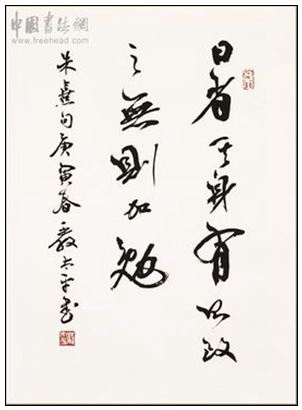 中國書法網
www.freehead.com
日省其身有則改
之無則加勉
朱熹句庚寅春嚴太平書